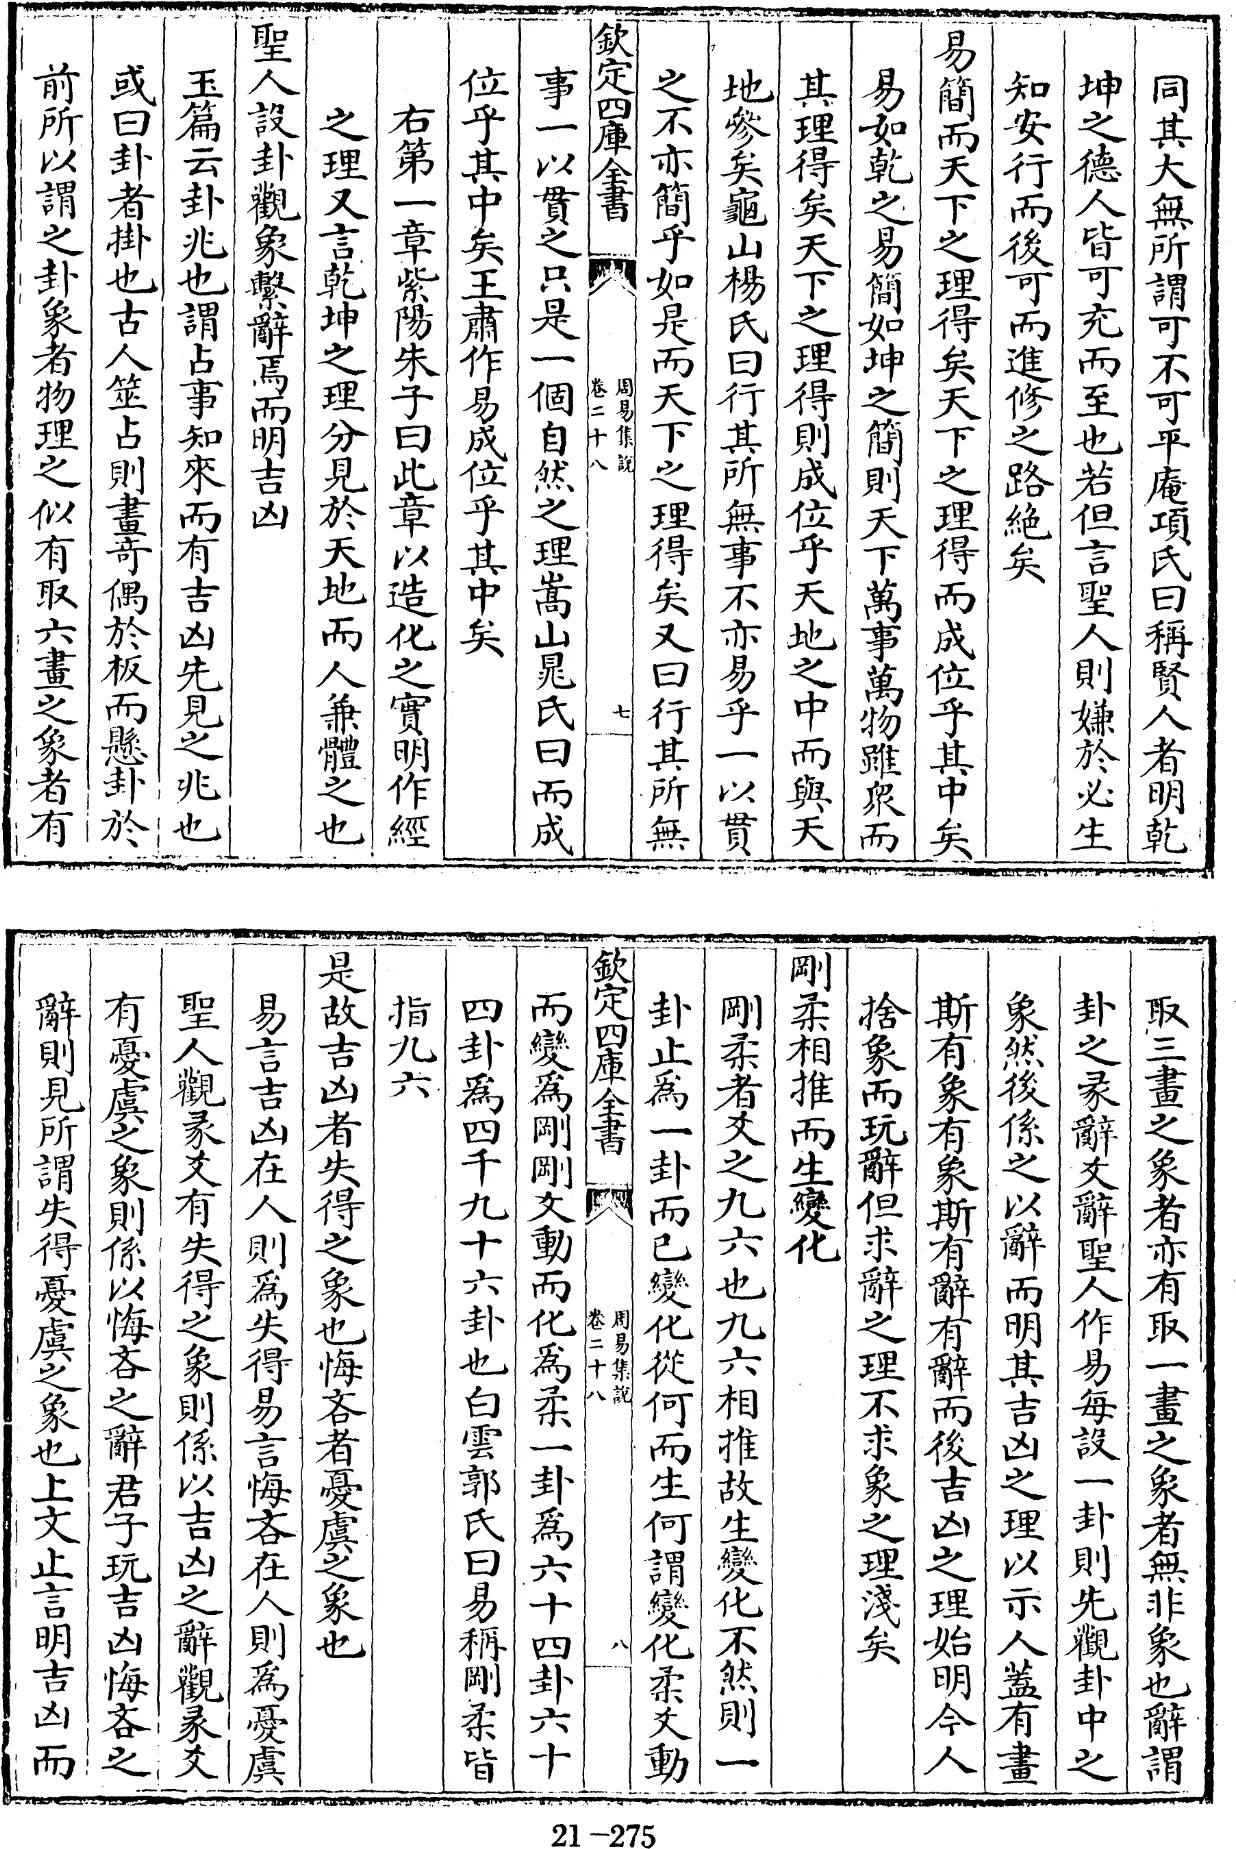 同其大無所謂可不可平庵項氏曰稱賢人者明乾
坤之德人皆可充而至也若但言聖人則嫌於必生
知安行而後可而進修之路絶矣
易簡而天下之理得矣天下之理得而成位乎其中矣
易如乾之易簡如坤之簡則天下萬事萬物雖衆而
其理得矣天下之理得則成位乎天地之中而與天
地參矣龜山楊氏曰行其所無事不亦易乎一以貫
之不亦簡乎如是而天下之理得矣又曰行其所無
欽定四庫全書
周易集說
卷二十八
七
事一以貫之只是一個自然之理嵩山晁氏曰而成
位乎其中矣王肅作易成位乎其中矣
右第一章紫陽朱子曰此章以造化之實明作經
之理又言乾坤之理分見於天地而人兼體之也
聖人設卦觀象繫辭焉而明吉凶
玉篇云卦兆也謂占事知來而有吉凶先見之兆也
或曰卦者掛也古人筮占則畫竒偶於板而懸卦於
前所以謂之卦象者物理之似有取六畫之象者有
取三畫之象者亦有取一畫之象者無非象也辭謂
卦之彖辭爻辭聖人作易每設一卦則先觀卦中之
象然後係之以辭而明其吉凶之理以示人蓋有畫
斯有象有象斯有辭有辭而後吉凶之理始明今人
捨象而玩辭但求辭之理不求象之理淺矣
剛柔相推而生變化
剛柔者爻之九六也九六相推故生變化不然則一
卦止爲一卦而已變化從何而生何謂變化柔爻動
欽定四庫全書
周易集說
卷二十八
八
而變爲剛剛爻動而化爲柔一卦爲六十四卦六十
四卦爲四千九十六卦也白雲郭氏曰易稱剛柔皆
指九六
是故吉凶者失得之象也悔吝者憂虞之象也
易言吉凶在人則爲失得易言悔吝在人則爲憂虞
聖人觀彖爻有失得之象則係以吉凶之辭觀彖爻
有憂虞之象則係以悔吝之辭君子玩吉凶悔吝之
辭則見所謂失得憂虞之象也上文止言明吉凶而
21-275